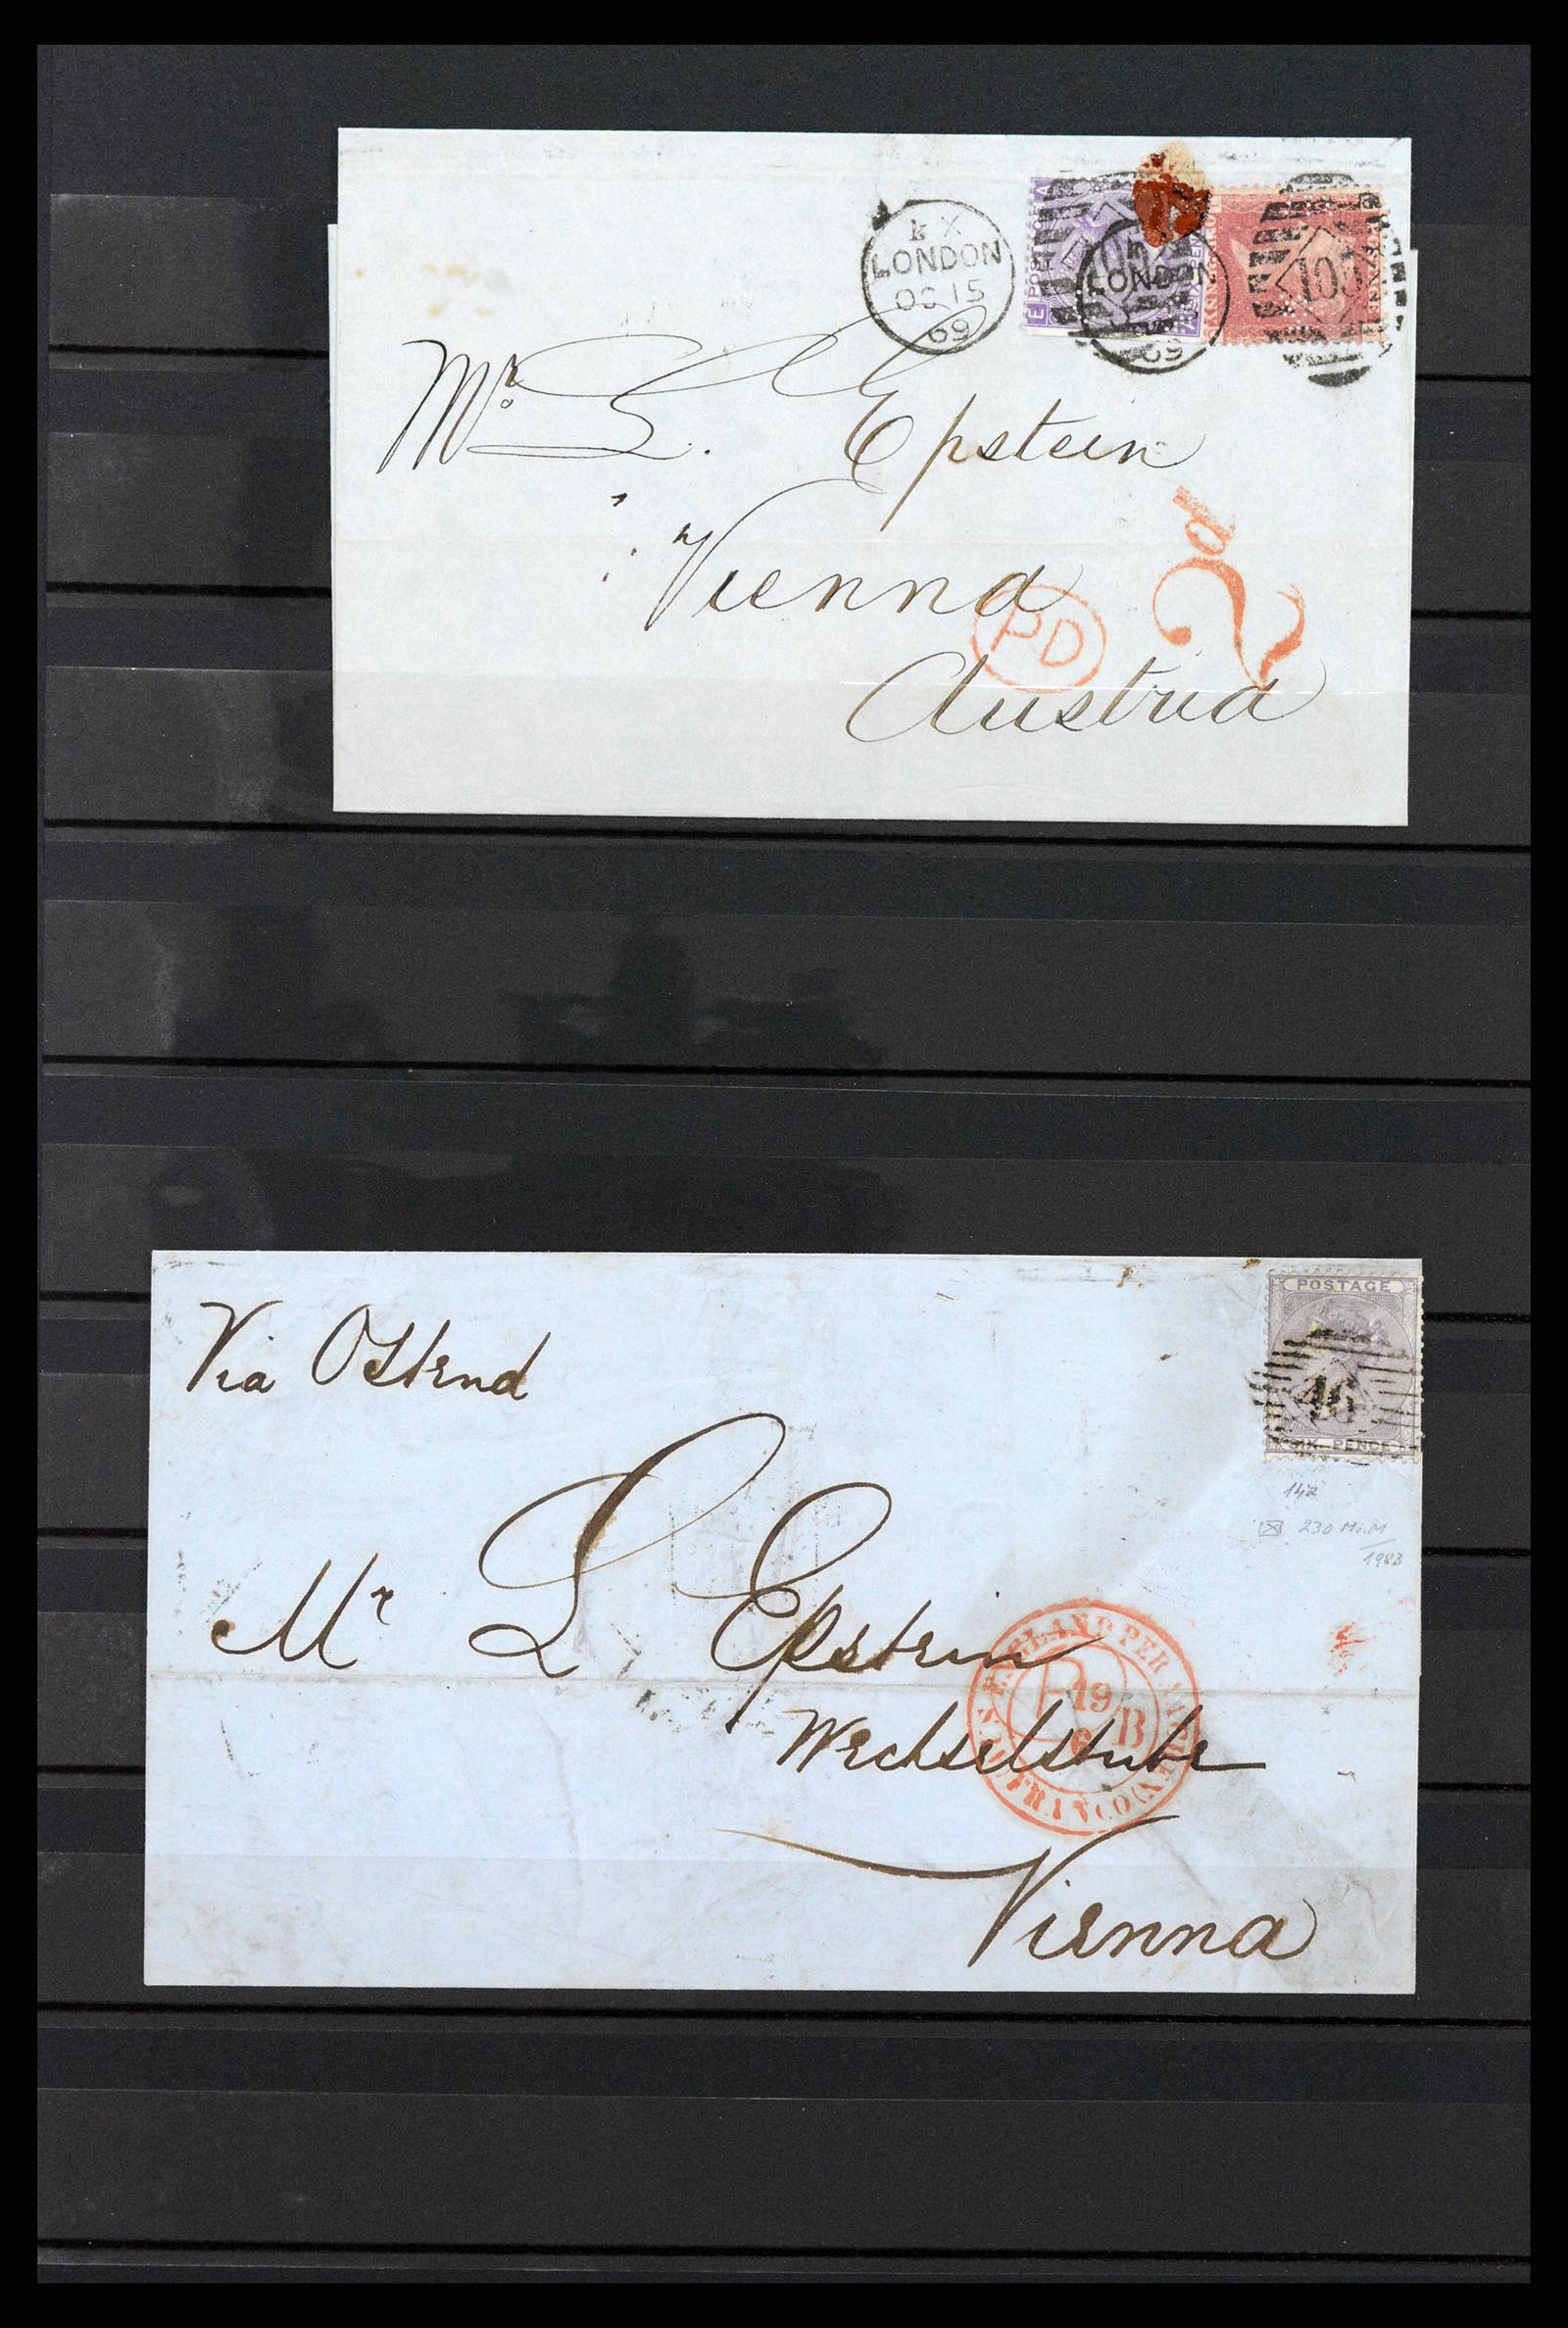 k X
LONDON
OC 15
69
LONDON
69
E
POST
A
Mr. L. Epstein
Vienna
Austria
PD
2d
Via Ostend
POSTAGE
SIX PENCE
46
14a
230 Mi.M
1983
Mr L Epstein
Wechselstube
Vienna
ENGLAND PER
FRANCO
19
6
B